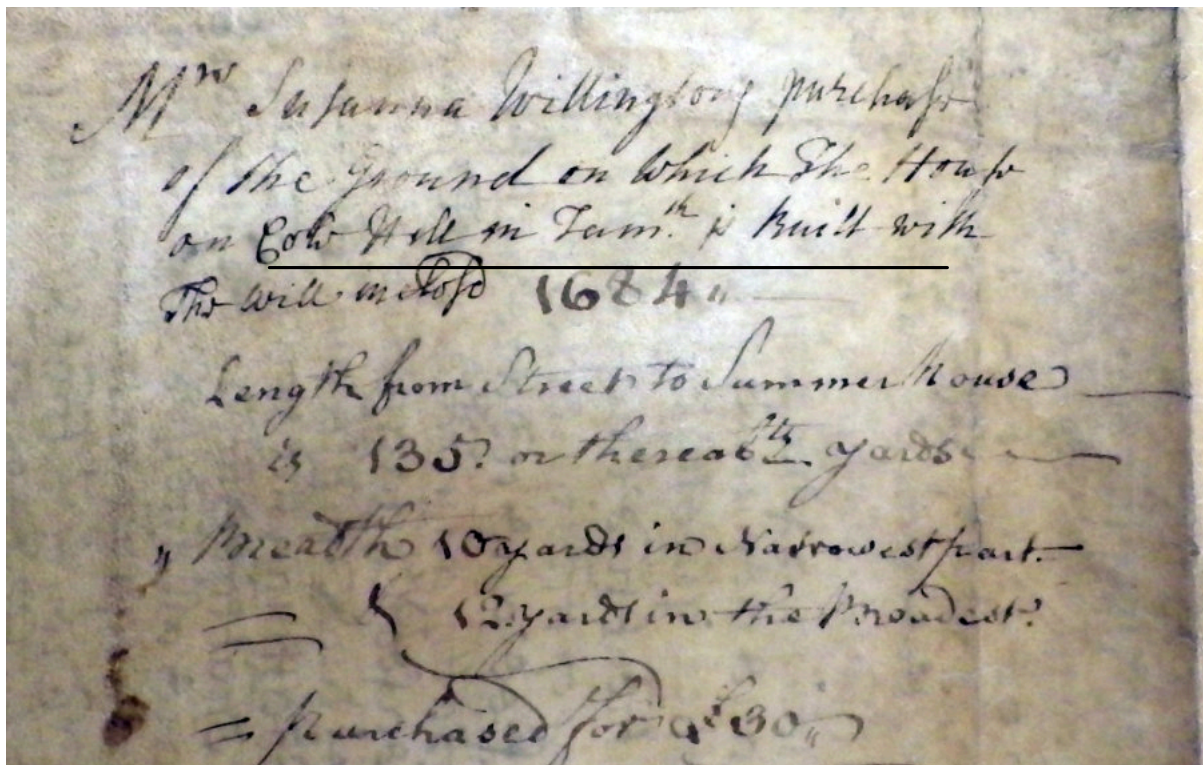 Mrs Susanna Willingtons purchase
of the Ground on which The House
on Cole Hill in Tamth is Built with
The will inclosd 1684 "
Length from Street to Summer House
is 135: or thereabts yards
" Breadth 10 yards in Narrowest part.
12 yards in the Broadest.
= purchased for £30 "